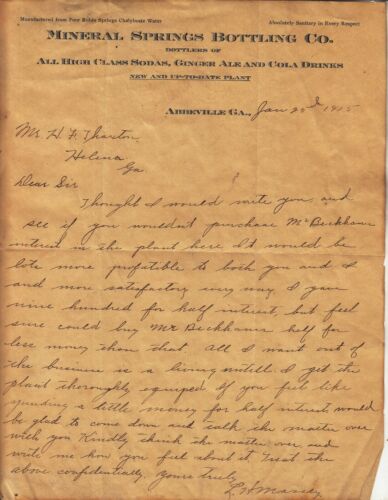 Manufactured from Poor Robin Springs Chalybeate Water
Absolutely Sanitary in Every Respect
MINERAL SPRINGS BOTTLING CO.
BOTTLERS OF
ALL HIGH CLASS SODAS, GINGER ALE AND COLA DRINKS
NEW AND UP-TO-DATE PLANT
ABBEVILLE GA., Jan 1915
Mr H. F. Tharton
Helena
Ga
Dear Sir
Thought I would write you and
see if you wouldn't purchase Mr Beckhams
interest in the plant here It would be
lots more profitable to both you and I
and more satisfactory every way. I gave
nine hundred for half interest, but feel
sure could buy Mr Beckhams half for
less money than that. All I want out of
the business is a living untill I get the
plant thoroughly equiped If you feel like
spending a little money for half interest would
be glad to come down and talk the matter over
with you Kindly think the matter over and
write me how you feel about it Treat the
above confidentially. Yours truly